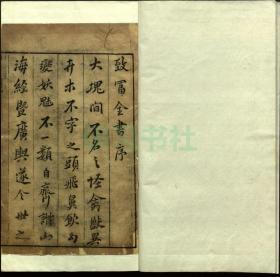 致富全書序
大塊間不名之怪禽獸異
卉木不字之頭飛鼻飲幻
變妖魅不一類自齊諧山
海經暨廣輿遂令世之